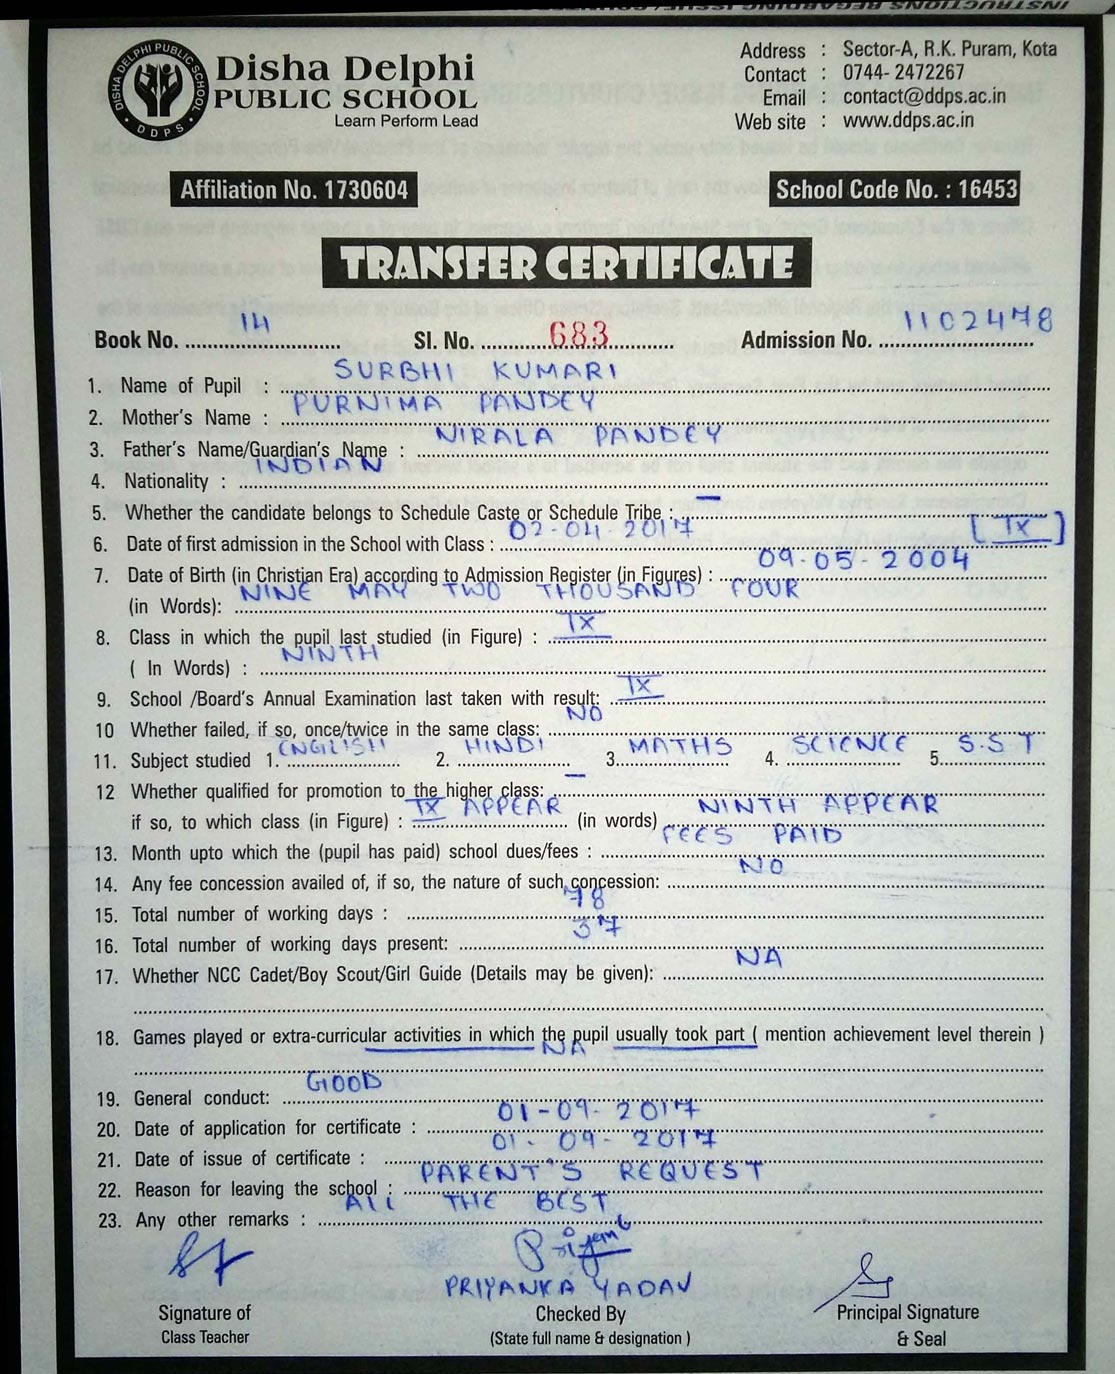 INSTRUCTIONS REGARDING ISSUE/COUNTER
DISHA DELPHI PUBLIC SCHOOL
• DDPS •
Disha Delphi
PUBLIC SCHOOL
Learn Perform Lead
Address : Sector-A, R.K. Puram, Kota
Contact : 0744- 2472267
Email : contact@ddps.ac.in
Web site : www.ddps.ac.in
Affiliation No. 1730604
School Code No. : 16453
TRANSFER CERTIFICATE
Book No. 14 Sl. No. 683 Admission No. 1102478
1. Name of Pupil : SURBHI KUMARI
2. Mother's Name : PURNIMA PANDEY
3. Father's Name/Guardian's Name : NIRALA PANDEY
4. Nationality : INDIAN
5. Whether the candidate belongs to Schedule Caste or Schedule Tribe : —
6. Date of first admission in the School with Class : 02-04-2017 [IX]
7. Date of Birth (in Christian Era) according to Admission Register (in Figures) : 09-05-2004
(in Words): NINE MAY TWO THOUSAND FOUR
8. Class in which the pupil last studied (in Figure) : IX
( In Words) : NINTH
9. School /Board's Annual Examination last taken with result: IX
10 Whether failed, if so, once/twice in the same class: NO
11. Subject studied 1. ENGLISH 2. HINDI 3. MATHS 4. SCIENCE 5. S.S T
12 Whether qualified for promotion to the higher class: —
if so, to which class (in Figure) : IX APPEAR (in words) NINTH APPEAR
13. Month upto which the (pupil has paid) school dues/fees : FEES PAID
14. Any fee concession availed of, if so, the nature of such concession: NO
15. Total number of working days : 78
16. Total number of working days present: 37
17. Whether NCC Cadet/Boy Scout/Girl Guide (Details may be given): NA
18. Games played or extra-curricular activities in which the pupil usually took part ( mention achievement level therein )
NA
19. General conduct: GOOD
20. Date of application for certificate : 01-09-2017
21. Date of issue of certificate : 01-09-2017
22. Reason for leaving the school : PARENT'S REQUEST
23. Any other remarks : ALL THE BEST
PRIYANKA YADAV
Signature of Checked By Principal Signature
Class Teacher (State full name & designation ) & Seal